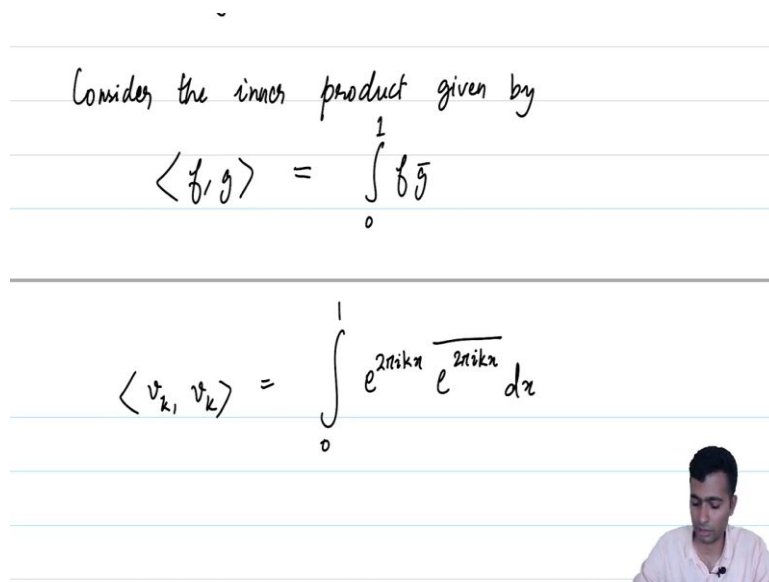 Consider the inner product given by
⟨f, g⟩ = ∫₀¹ f g̅
⟨v_k, v_k⟩ = ∫₀¹ e^{2πikx} \overline{e^{2πikx}} dx